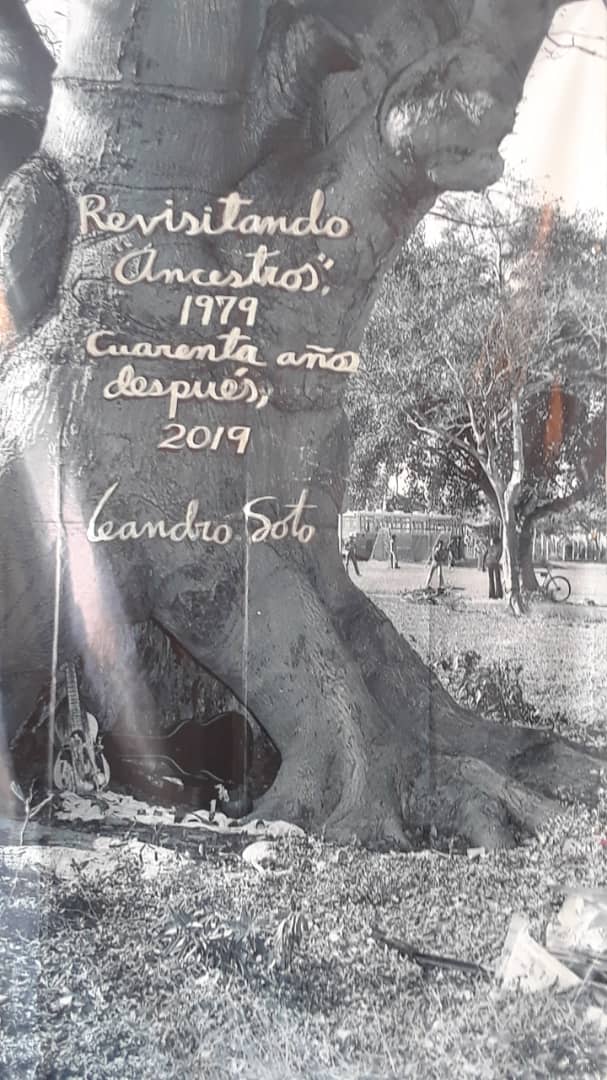 Revisitando
"Ancestros",
1979
Cuarenta años
después,
2019
Leandro Soto